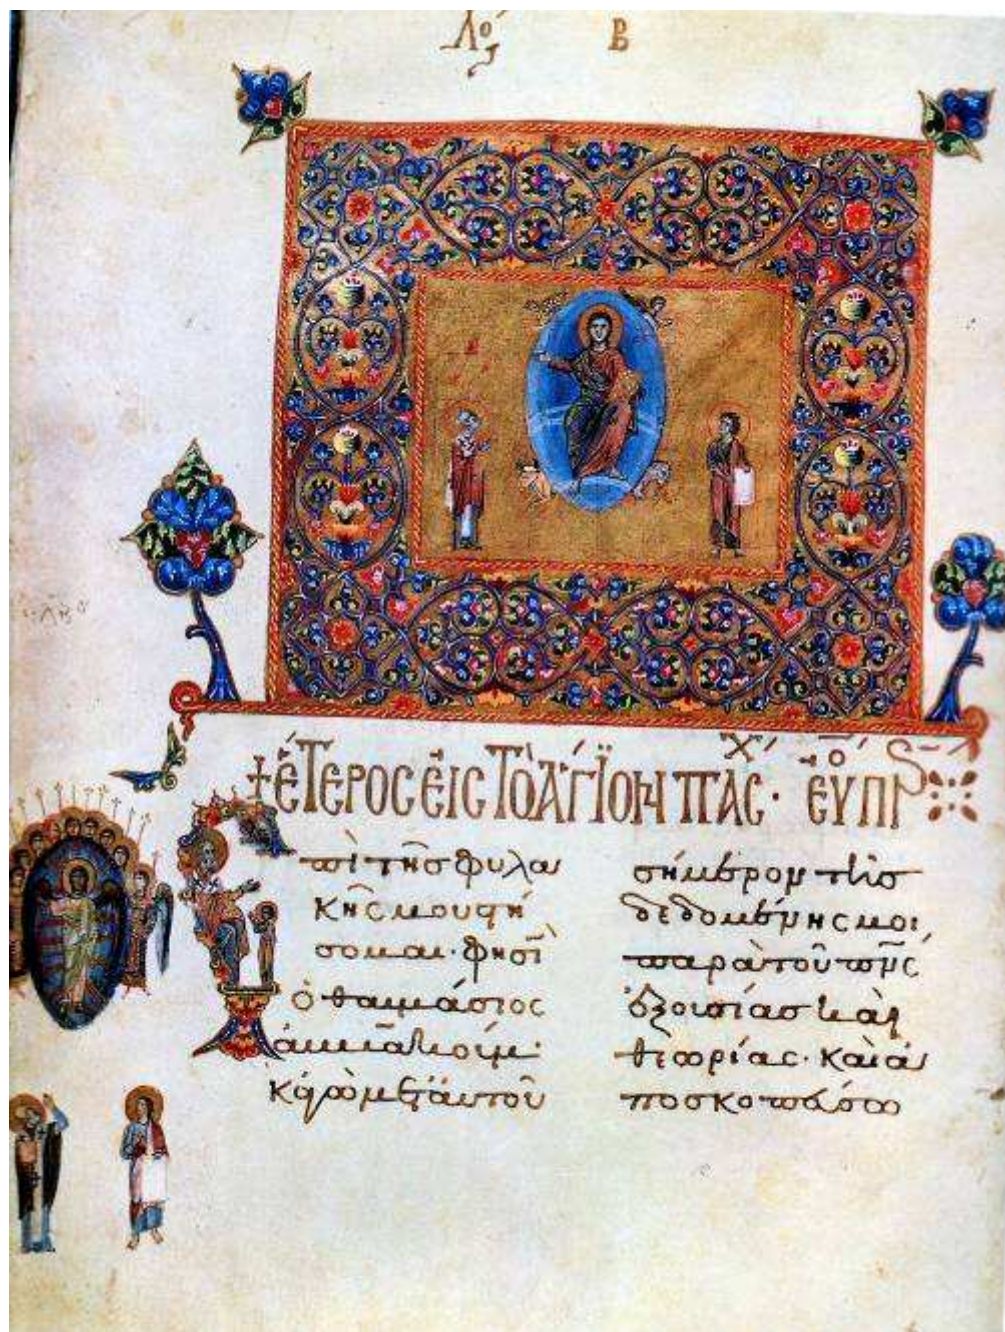 Λό Β
+ ἕτερος εἰς τὸ ἅγιον πάσχ· εὐ
πὶ τῆς φυλα
κῆς μου στή
σομαι· φησὶ
ὁ θαυμάσιος
ἀμβακούμ·
κἀγὼ μετ' αὐτοῦ
σήμερον τῆς
δεδομένης μοι
παρὰ τοῦ πνς
ἐξουσίας καὶ
θεωρίας· καὶ ἀ
ποσκοπεύσω